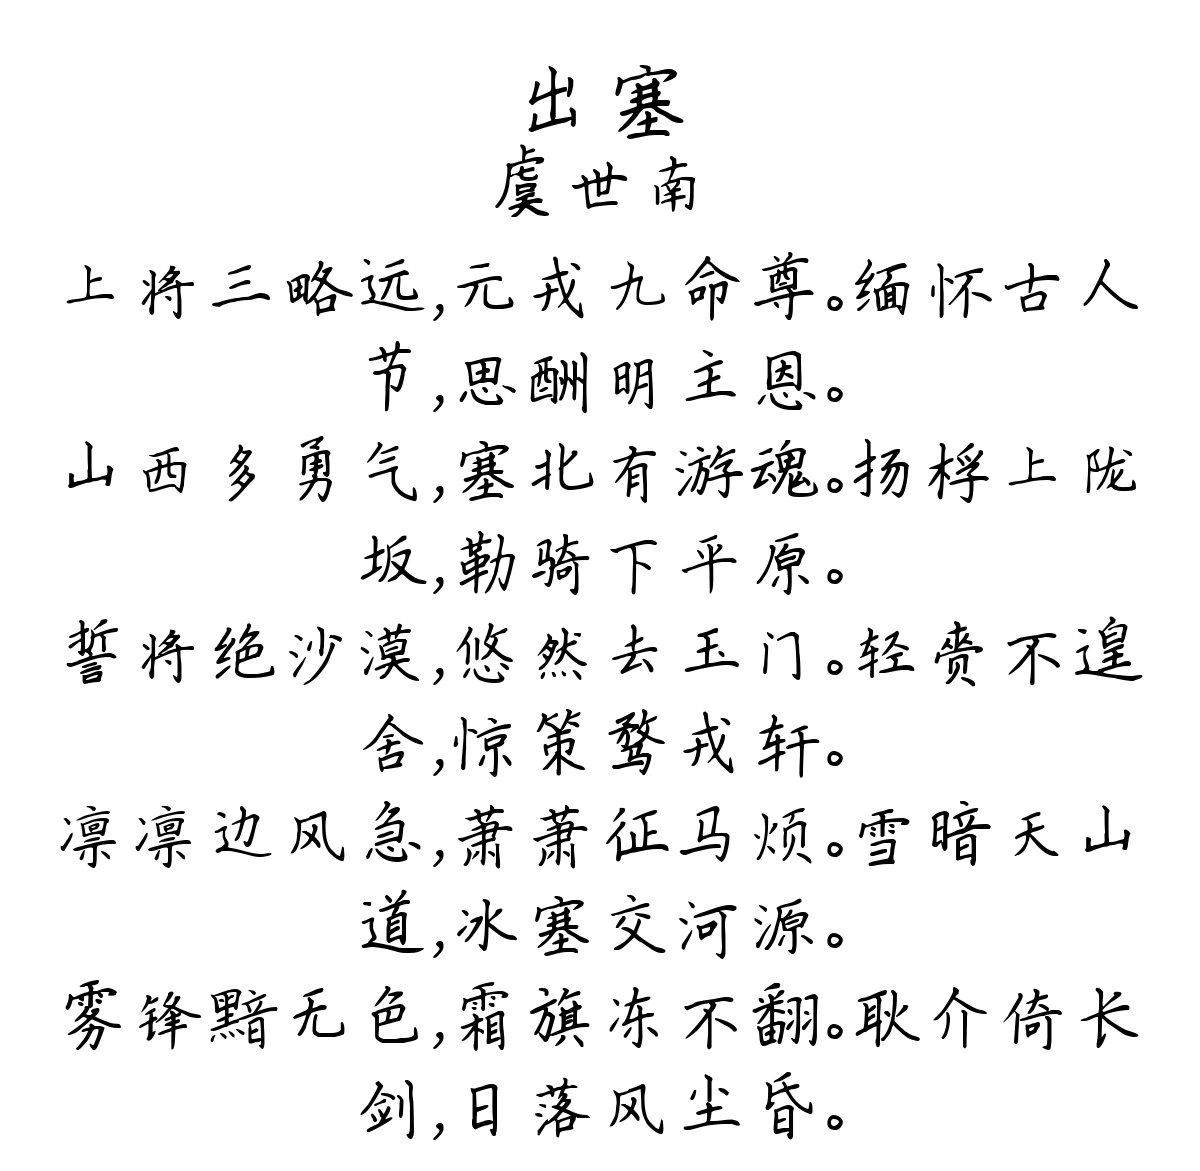 出塞
虞世南
上将三略远,元戎九命尊。缅怀古人
节,思酬明主恩。
山西多勇气,塞北有游魂。扬桴上陇
坂,勒骑下平原。
誓将绝沙漠,悠然去玉门。轻赍不遑
舍,惊策骛戎轩。
凛凛边风急,萧萧征马烦。雪暗天山
道,冰塞交河源。
雾锋黯无色,霜旗冻不翻。耿介倚长
剑,日落风尘昏。